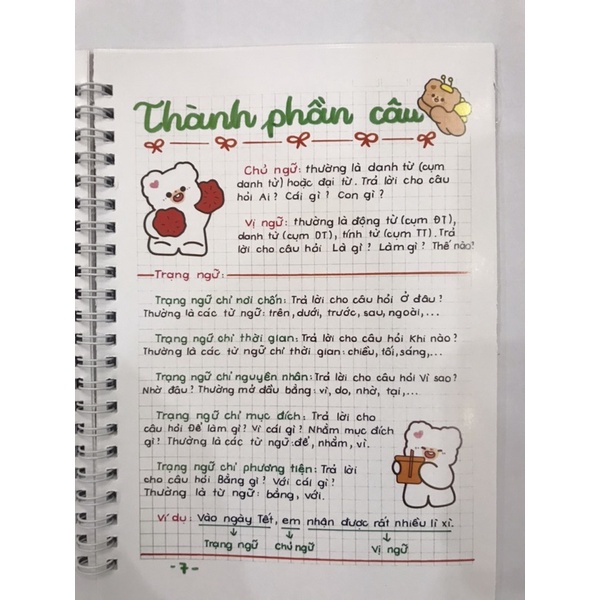 Thành phần câu
Chủ ngữ: thường là danh từ (cụm
danh từ) hoặc đại từ. Trả lời cho câu
hỏi Ai? Cái gì? Con gì?
Vị ngữ: thường là động từ (cụm ĐT),
danh từ (cụm DT), tính từ (cụm TT). Trả
lời cho câu hỏi Là gì? Làm gì? Thế nào?
Trạng ngữ:
Trạng ngữ chỉ nơi chốn: Trả lời cho câu hỏi Ở đâu?
Thường là các từ ngữ: trên, dưới, trước, sau, ngoài,...
Trạng ngữ chỉ thời gian: Trả lời câu hỏi Khi nào?
Thường là các từ ngữ chỉ thời gian: chiều, tối, sáng,...
Trạng ngữ chỉ nguyên nhân: Trả lời cho câu hỏi Vì sao?
Nhờ đâu? Thường mở đầu bằng: vì, do, nhờ, tại,...
Trạng ngữ chỉ mục đích: Trả lời cho
câu hỏi Để làm gì? Vì cái gì? Nhằm mục đích
gì? Thường là các từ ngữ: để, nhằm, vì.
Trạng ngữ chỉ phương tiện: Trả lời
cho câu hỏi Bằng gì? Với cái gì?
Thường là từ ngữ: bằng, với.
Ví dụ: Vào ngày Tết, em nhận được rất nhiều lì xì.
Trạng ngữ chủ ngữ Vị ngữ
-7-